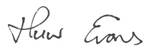 Huw Evans